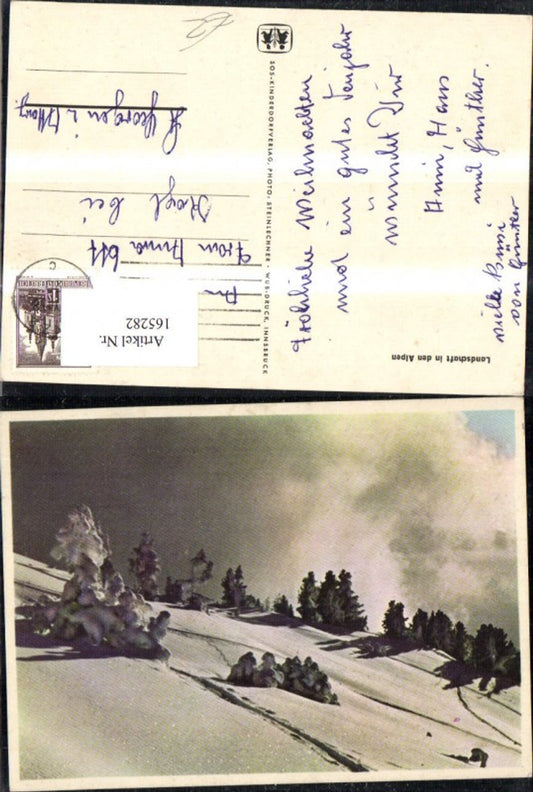 Fröhliche Weihnachten
und ein gutes Neujahr
wünscht Dir
Anni, Hans
und Günther.
viele Bussi
von Günther
Landschaft in den Alpen
SOS-KINDERDORFVERLAG, PHOTO-STEINLECHNER - WUB-DRUCK, INNSBRUCK
Frau Anna
Kogl bei
St Georgen i. Attg.
Artikel Nr.
165282